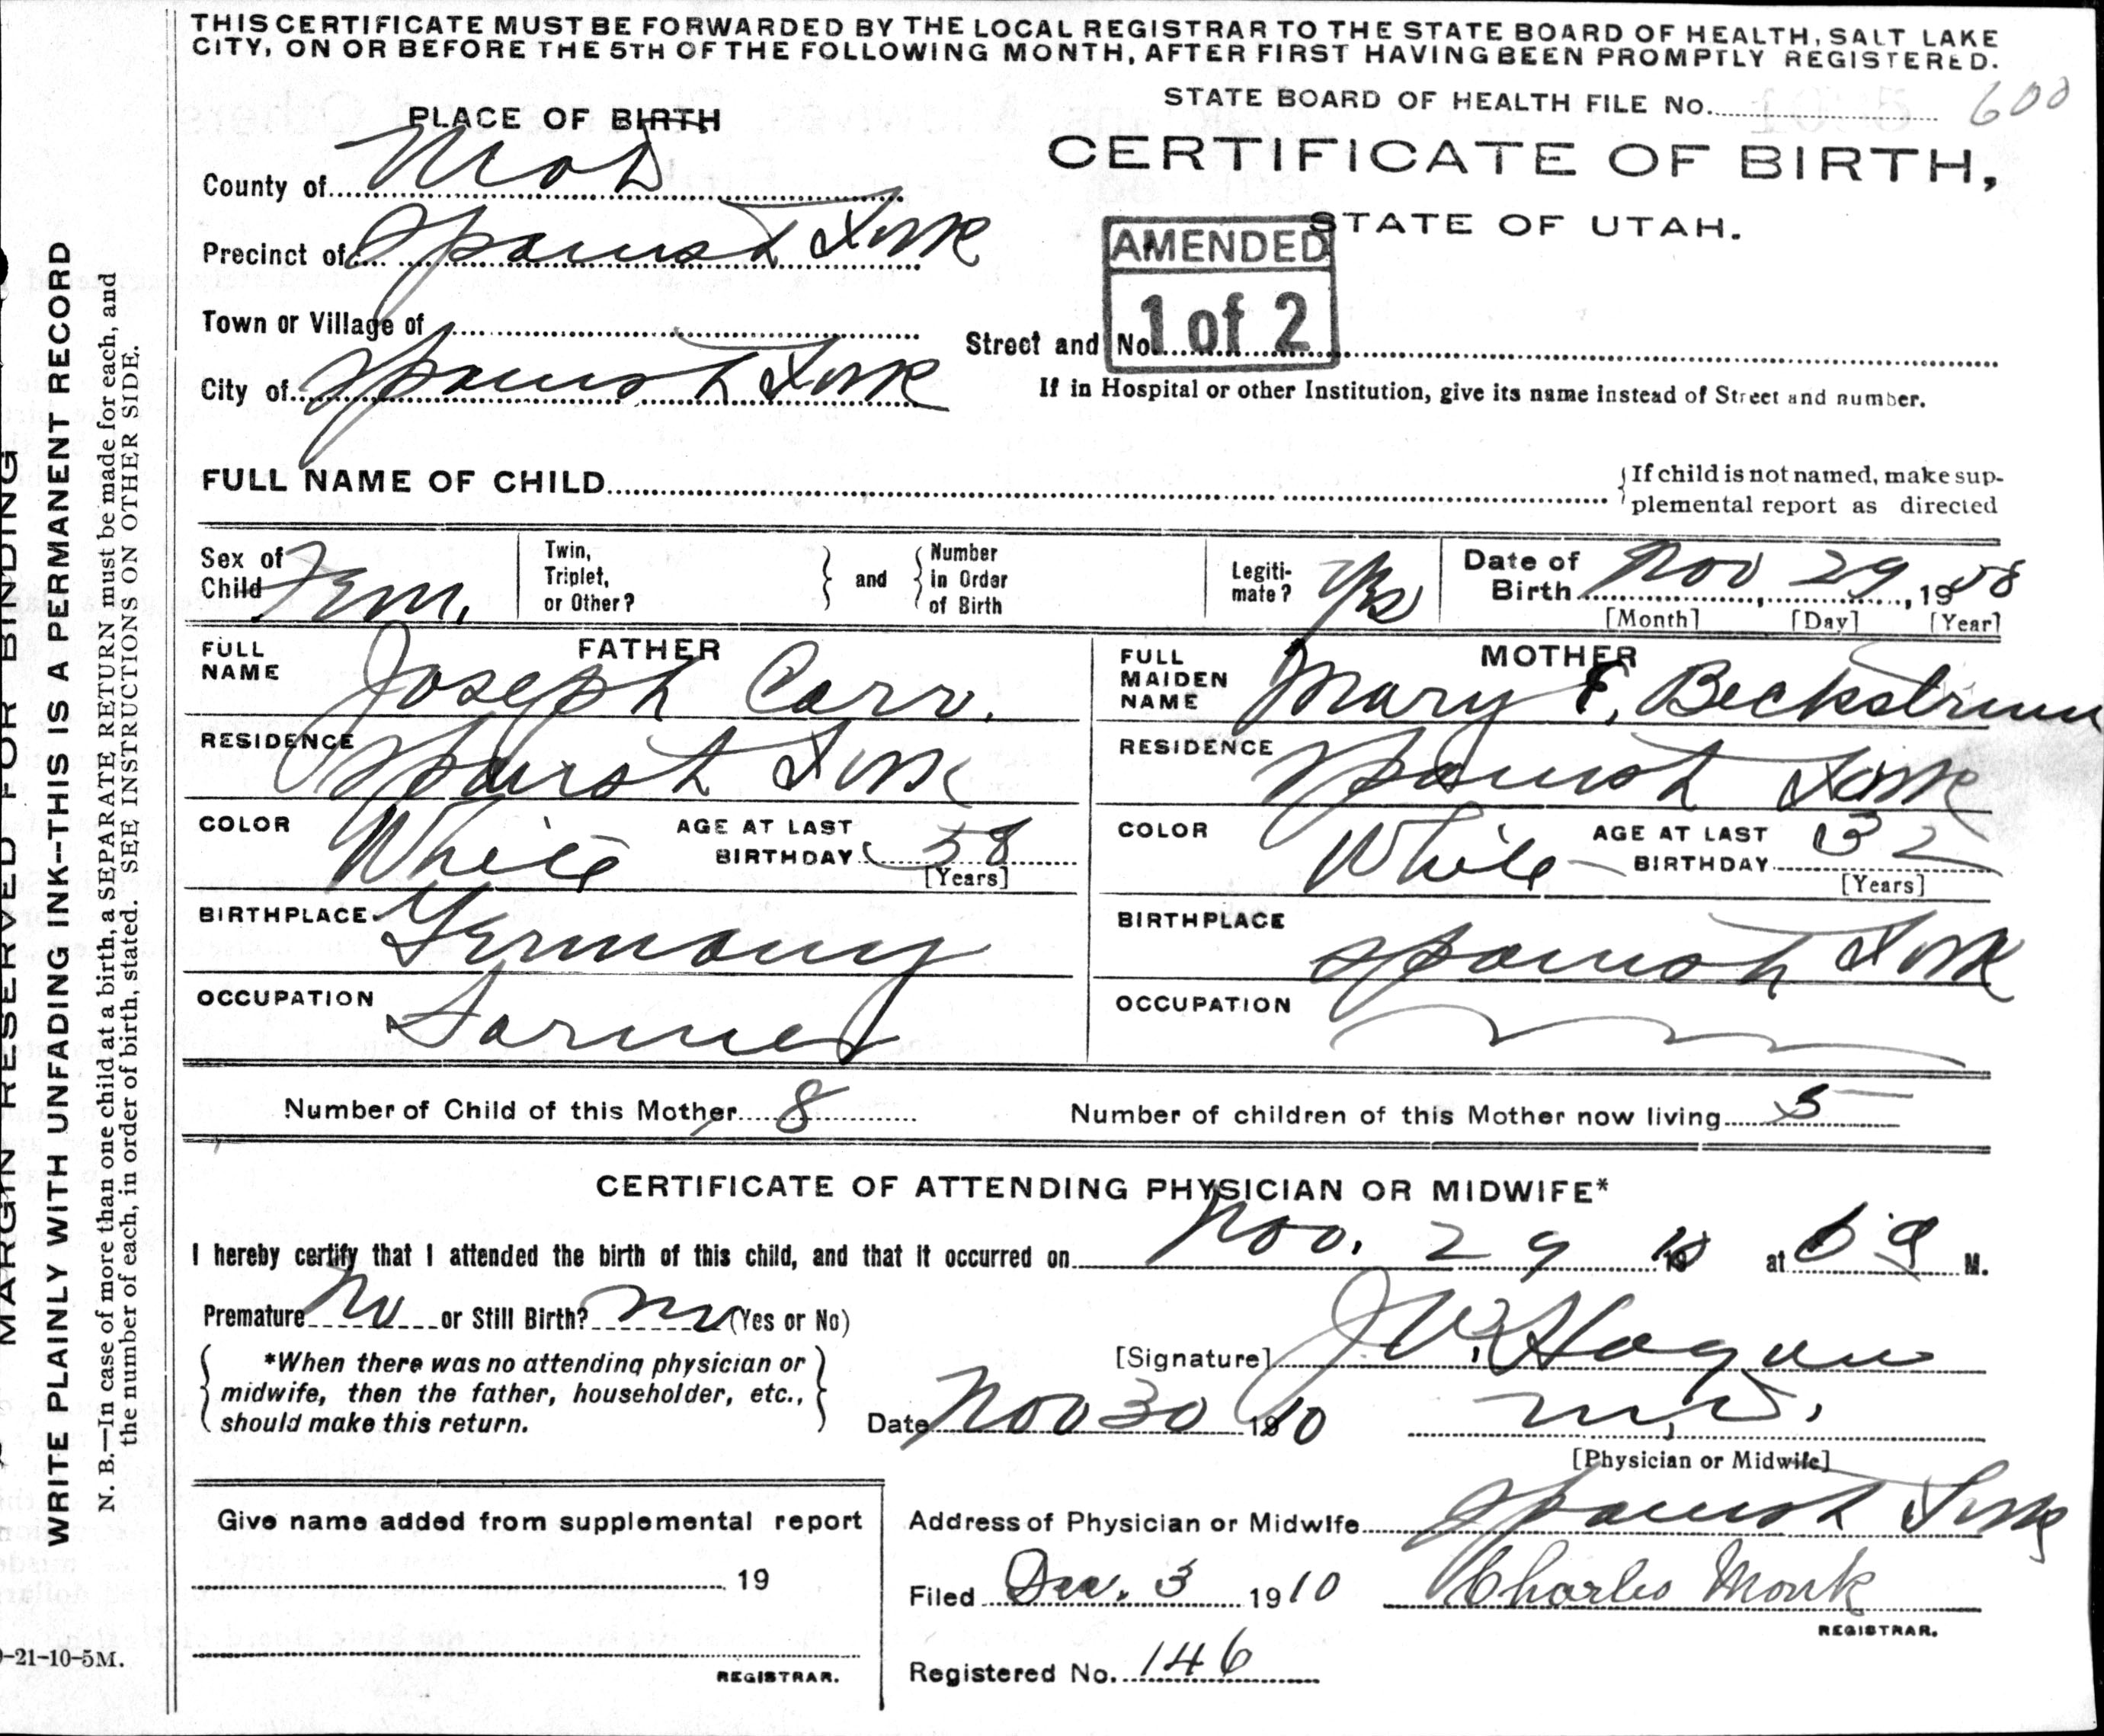 THIS CERTIFICATE MUST BE FORWARDED BY THE LOCAL REGISTRAR TO THE STATE BOARD OF HEALTH, SALT LAKE
CITY, ON OR BEFORE THE 5TH OF THE FOLLOWING MONTH, AFTER FIRST HAVING BEEN PROMPTLY REGISTERED.
STATE BOARD OF HEALTH FILE No. 600
PLACE OF BIRTH
CERTIFICATE OF BIRTH,
STATE OF UTAH.
County of
Precinct of Spanish Fork
AMENDED
1 of 2
Town or Village of
Street and No.
City of Spanish Fork
If in Hospital or other Institution, give its name instead of Street and number.
FULL NAME OF CHILD
If child is not named, make sup-
plemental report as directed
Sex of Child Fem.
Twin, Triplet, or Other?
and
Number in Order of Birth
Legiti-mate? Yes
Date of Birth Nov 29, 19
[Month] [Day] [Year]
FATHER
FULL NAME Joseph Carr.
RESIDENCE Spanish Fork
COLOR White AGE AT LAST BIRTHDAY 58
[Years]
BIRTHPLACE Germany
OCCUPATION Farmer
MOTHER
FULL MAIDEN NAME Mary E. Beckstrum
RESIDENCE Spanish Fork
COLOR White AGE AT LAST BIRTHDAY 32
[Years]
BIRTHPLACE Spanish Fork
OCCUPATION
Number of Child of this Mother 8 Number of children of this Mother now living 5
CERTIFICATE OF ATTENDING PHYSICIAN OR MIDWIFE*
I hereby certify that I attended the birth of this child, and that it occurred on Nov. 29 1910 at 6 a M.
Premature No or Still Birth? No (Yes or No)
*When there was no attending physician or
midwife, then the father, householder, etc.,
should make this return.
[Signature] J W Hagan
Date Nov 30 1910 M.D.
[Physician or Midwife]
Give name added from supplemental report
19
REGISTRAR.
Address of Physician or Midwife Spanish Fork
Filed Dec. 3 1910 Charles Monk
REGISTRAR.
Registered No. 146
MARGIN RESERVED FOR BINDING
WRITE PLAINLY WITH UNFADING INK--THIS IS A PERMANENT RECORD
N. B.—In case of more than one child at a birth, a SEPARATE RETURN must be made for each, and
the number of each, in order of birth, stated. SEE INSTRUCTIONS ON OTHER SIDE.
-21-10-5M.